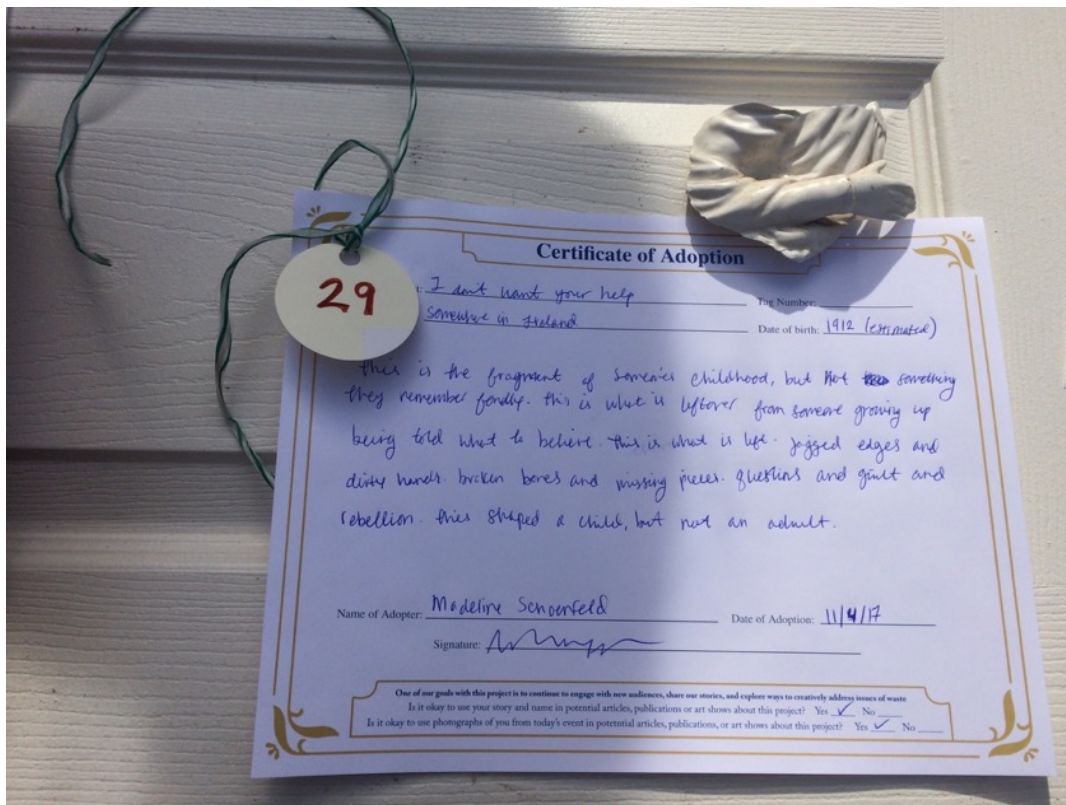 Certificate of Adoption
29
I don't want your help
Tag Number:
somewhere in Ireland
Date of birth: 1912 (estimated)
this is the fragment of someone's childhood, but not something
they remember fondly. this is what is leftover from someone growing up
being told what to believe. this is what is left. jagged edges and
dirty hands. broken bones and missing pieces. questions and guilt and
rebellion. this shaped a child, but not an adult.
Name of Adopter: Madeline Schoenfeld
Date of Adoption: 11/4/17
Signature:
One of our goals with this project is to continue to engage with new audiences, share our stories, and explore ways to creatively address issues of waste
Is it okay to use your story and name in potential articles, publications or art shows about this project? Yes ✓ No
Is it okay to use photographs of you from today's event in potetntial articles, publications, or art shows about this project? Yes ✓ No